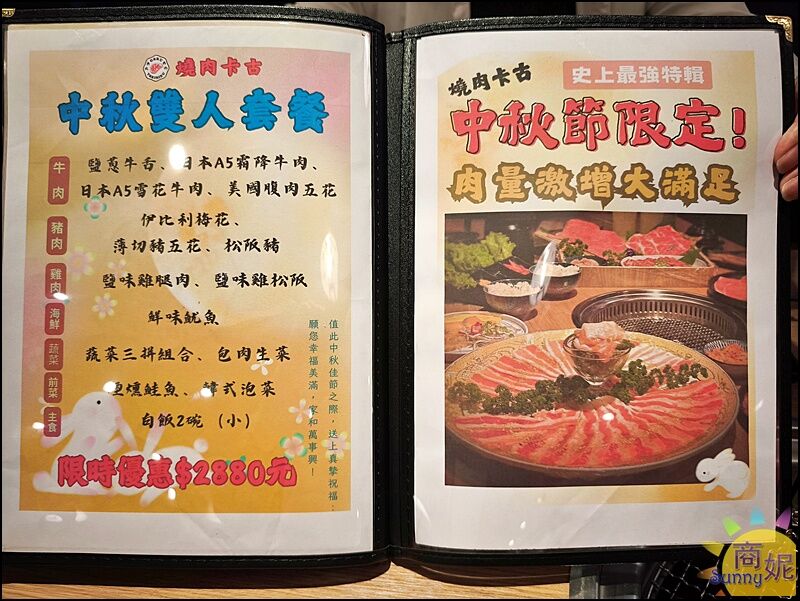 燒肉卡古
中秋雙人套餐
牛肉
鹽蔥牛舌、日本A5霜降牛肉、
日本A5雪花牛肉、美國腹肉五花
豬肉
伊比利梅花、
薄切豬五花、松阪豬
雞肉
鹽味雞腿肉、鹽味雞松阪
海鮮
鮮味魷魚
蔬菜
蔬菜三拼組合、包肉生菜
前菜
煙燻鮭魚、韓式泡菜
主食
白飯2碗（小）
值此中秋佳節之際，送上真摯祝福：
願您幸福美滿，家和萬事興！
限時優惠$2880元
燒肉卡古
史上最強特輯
中秋節限定！
肉量激增大滿足
商妮
sunny